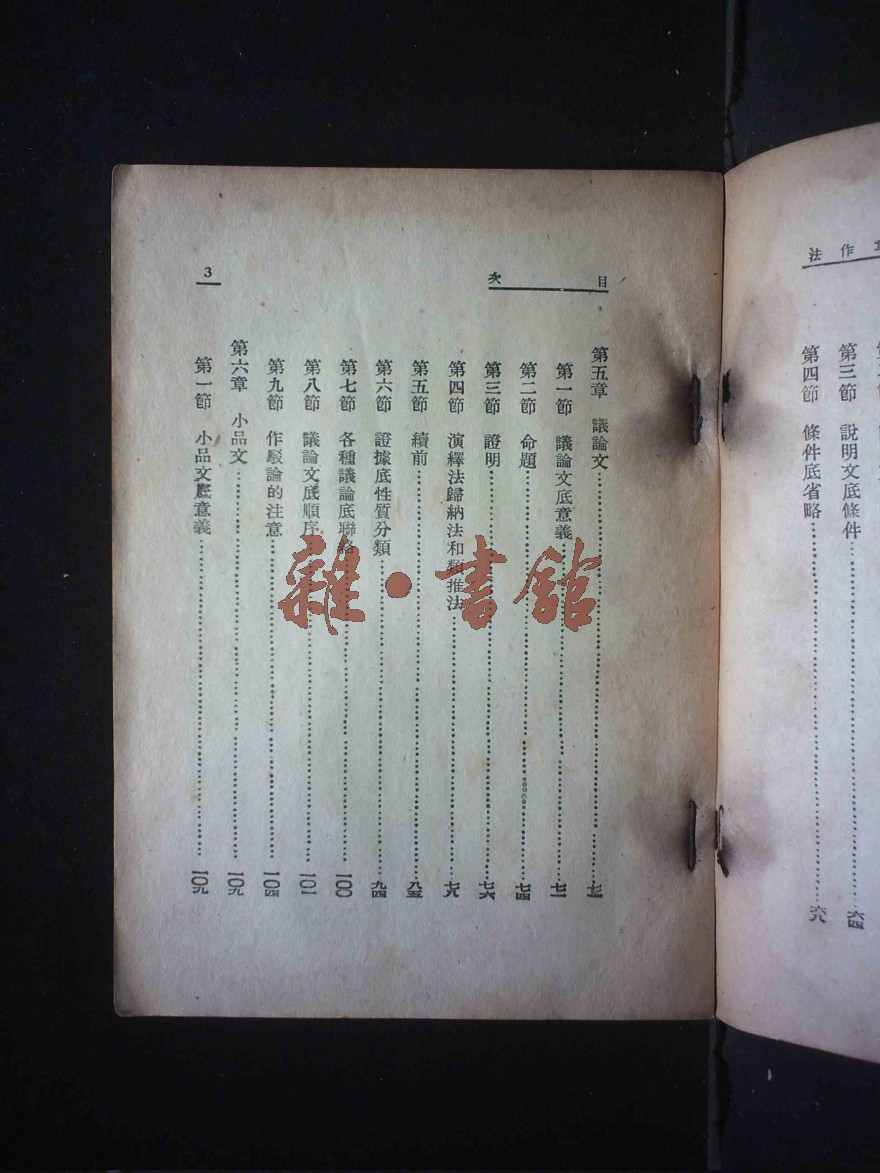 作法
第三節　說明文底條件……六四
第四節　條件底省略……六八
目次
第五章　議論文……七二
第一節　議論文底意義……七二
第二節　命題……七四
第三節　證明……七六
第四節　演繹法歸納法和類推法……七八
第五節　續前……八五
第六節　證據底性質分類……九四
第七節　各種議論底聯絡……一〇〇
第八節　議論文底順序……一〇一
第九節　作駁論的注意……一〇四
第六章　小品文……一〇九
第一節　小品文底意義……一〇九
3
雜·書館